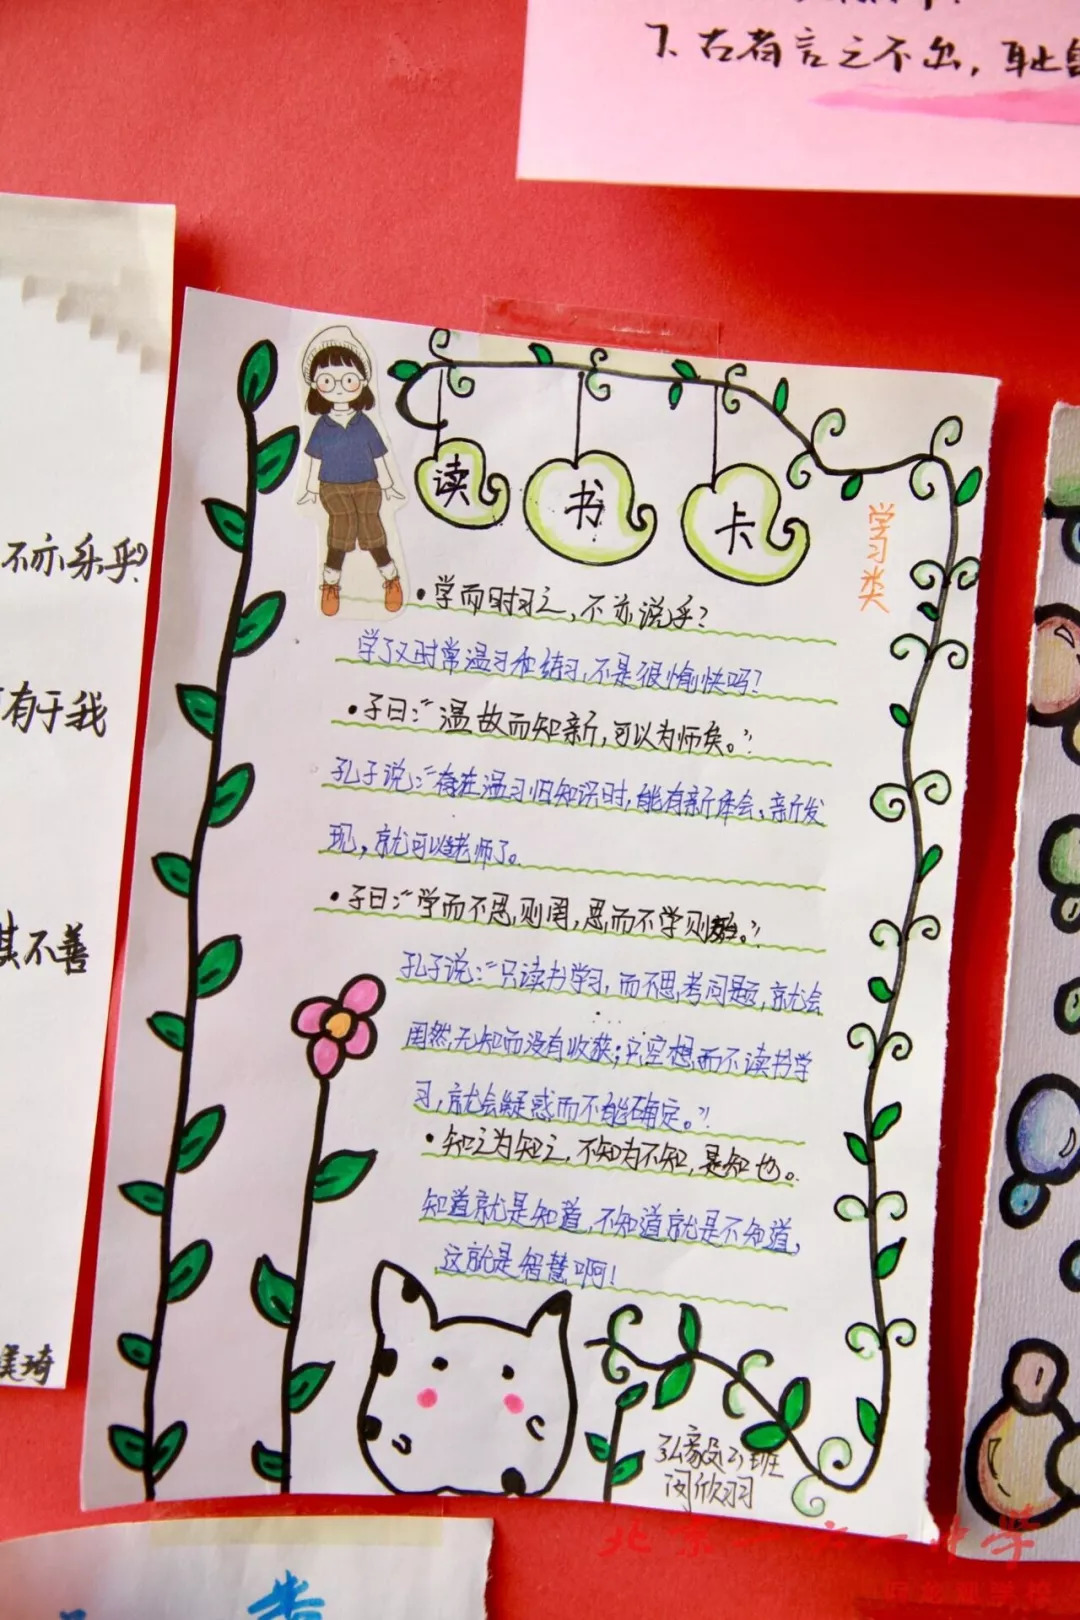 7.古者言之不出，耻
不亦乐乎？
有于我
其不善
美琦
读书卡
学习类
•学而时习之，不亦说乎？
学了又时常温习和练习，不是很愉快吗？
•子曰：“温故而知新，可以为师矣。”
孔子说：“在温习旧知识时，能有新体会、新发
现，就可以当老师了。
•子曰：“学而不思，则罔，思而不学则殆。”
孔子说：“只读书学习，而不思考问题，就会
罔然无知而没有收获；只空想而不读书学
习，就会疑惑而不能确定。”
•知之为知之，不知为不知，是知也。
知道就是知道，不知道就是不知道，
这就是智慧啊！
弘毅(2)班
闵欣羽
北京一六一中学